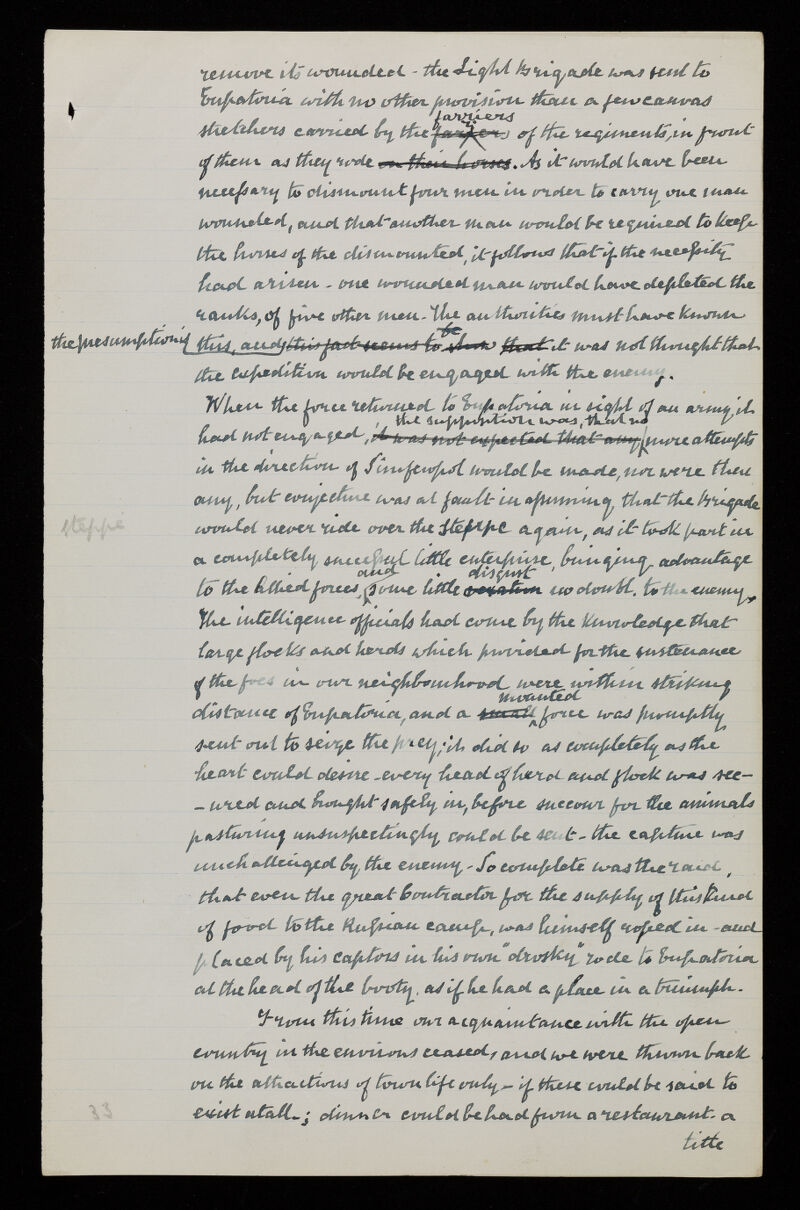 remove its wounded - the Light Brigade was sent to
Eupatoria with no other provision than a few canvas
farriers
stretchers carried by the farriers of the regiments, in front
of them as they rode on their horses. As it would have been
necessary to dismount four men in order to carry one man
wounded, and that another man would be required to keep
the horses of the dismounted, it follows that if the necessity
had arisen - one wounded man would have depleted the
ranks, of five other men - The authorities must have known
be
the presumption is
this, and this fact seems to show that it was not thought that
the expedition would be engaged with the enemy.
When the force returned to Eupatoria in sight of an army, it
the supposition was, that no
had not engaged, it was not expected that any more attempts
in the direction of Simferopol would be made, nor were there
any, but conjecture was at fault in assuming, that the Brigade
steppe
would never ride over the steppe again, as it took part in
a completely successful little enterprise, bringing advantage
and disgust
to the Allied forces, some little vexation no doubt, to the enemy.
The intelligence officials had come by the knowledge that
large flocks and herds which provided for the sustenance
of the foes in our neighbourhood were within striking
mounted
distance of Eupatoria, and a small force was promptly
sent out to seize the prey; it did so as completely as the
heart could desire - every head of herd and flock was sec-
-ured and brought safely in, before succour for the animals
pasturing unsuspectingly could be sent - the capture was
unchallenged by the enemy - So complete was the raid,
that even the great Contractor for the supply of this kind
of food to the Russian camp, was himself roped in - and
placed by his captors in his own "drosky" rode to Eupatoria
at the head of the booty, as if he had a place in a triumph.
From this time our acquaintance with the open
country in the environs ceased, and we were thrown back
on the attractions of town life only - if these could be said to
33
exist at all -; dinner could be had from a restaurant - a
little